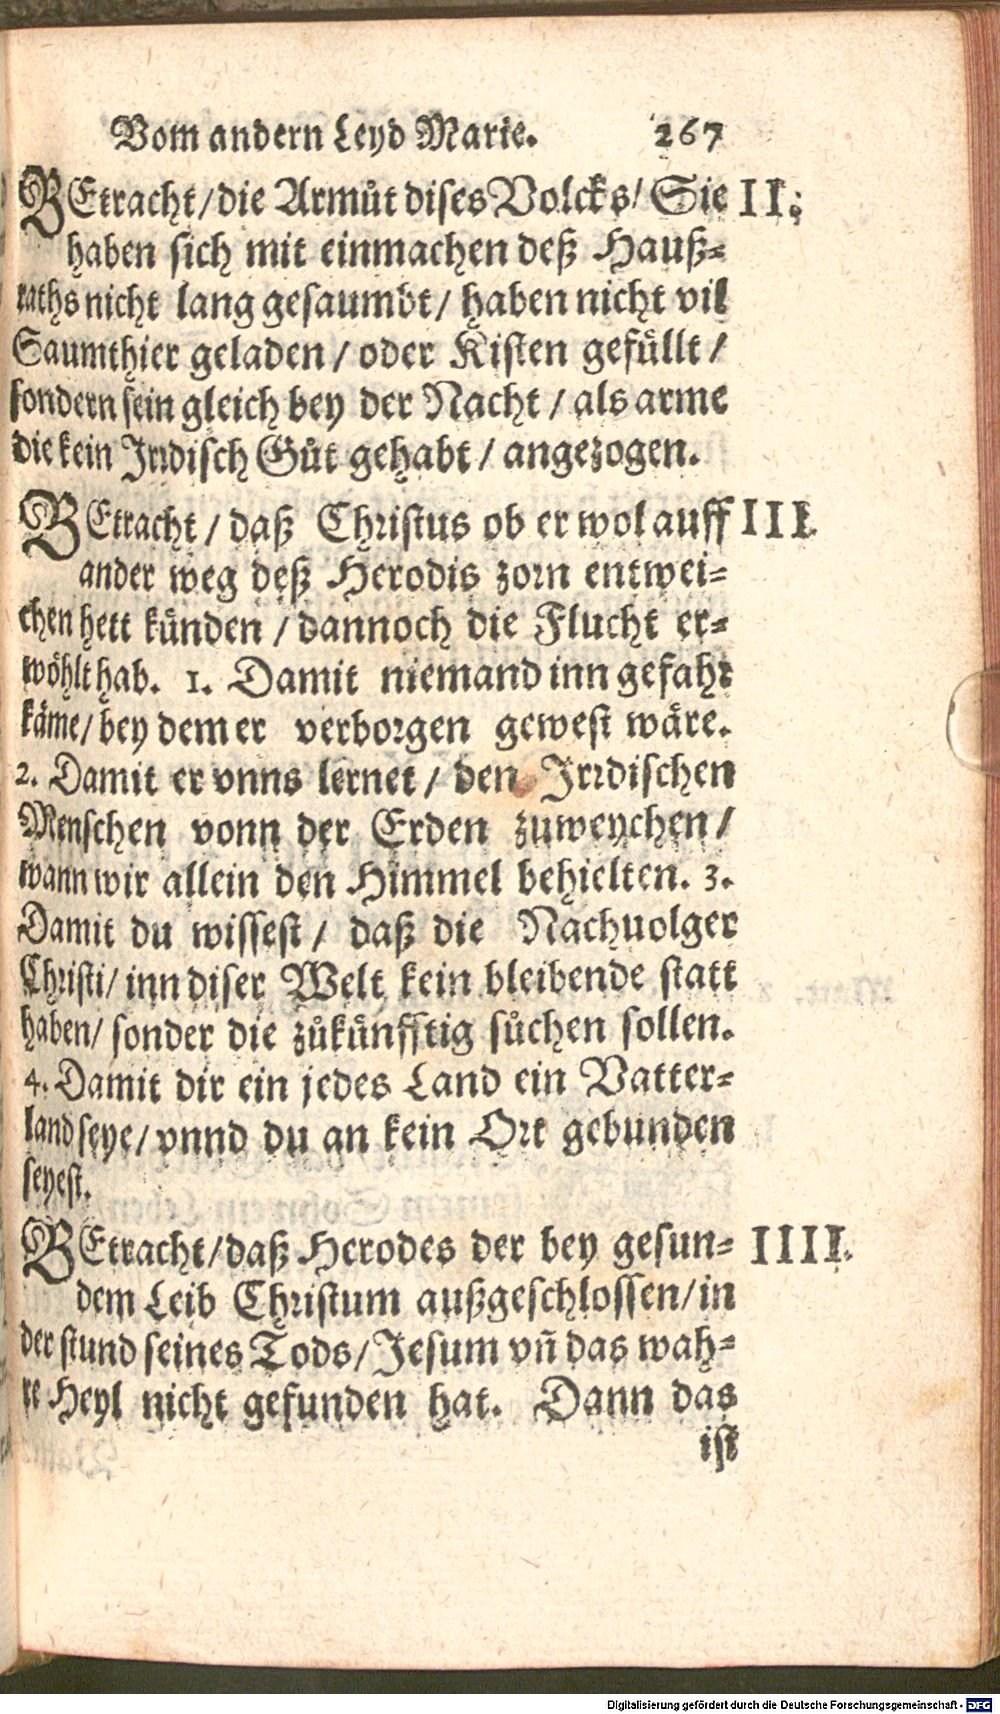 Vom andern Leyd Marie. 267
BEtracht / die Armůt dises Volcks / Sie II.
haben sich mit einmachen deß Hauß-
raths nicht lang gesaumbt / haben nicht vil
Saumthier geladen / oder Kisten gefüllt /
sondern sein gleich bey der Nacht / als arme
die kein Irrdisch Gůt gehabt / angezogen.
BEtracht / daß Christus ob er wol auff III.
ander weg deß Herodis zorn entwei-
chen hett künden / dannoch die Flucht er-
wöhlt hab. 1. Damit niemand inn gefahr
käme / bey dem er verborgen gewest wäre.
2. Damit er vnns lernet / den Irrdischen
Menschen vonn der Erden zuweychen /
wann wir allein den Himmel behielten. 3.
Damit du wissest / daß die Nachuolger
Christi / inn diser Welt kein bleibende statt
haben / sonder die zůkünfftig sůchen sollen.
4. Damit dir ein jedes Land ein Vatter-
land seye / vnnd du an kein Ort gebunden
seyest.
BEtracht / daß Herodes der bey gesun- IIII.
dem Leib Christum außgeschlossen / in
der stund seines Tods / Jesum vñ das wah-
re Heyl nicht gefunden hat. Dann das
ist
Digitalisierung gefördert durch die Deutsche Forschungsgemeinschaft - DFG